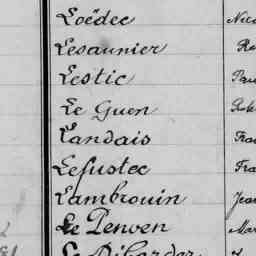 Loëdec Nico
Lesaunier
Lestic Pau
Le Guen Rob
Landais Fra
Lefustec Fra
Lambrouin Jean
Le Penven Mar
Le Dibardar